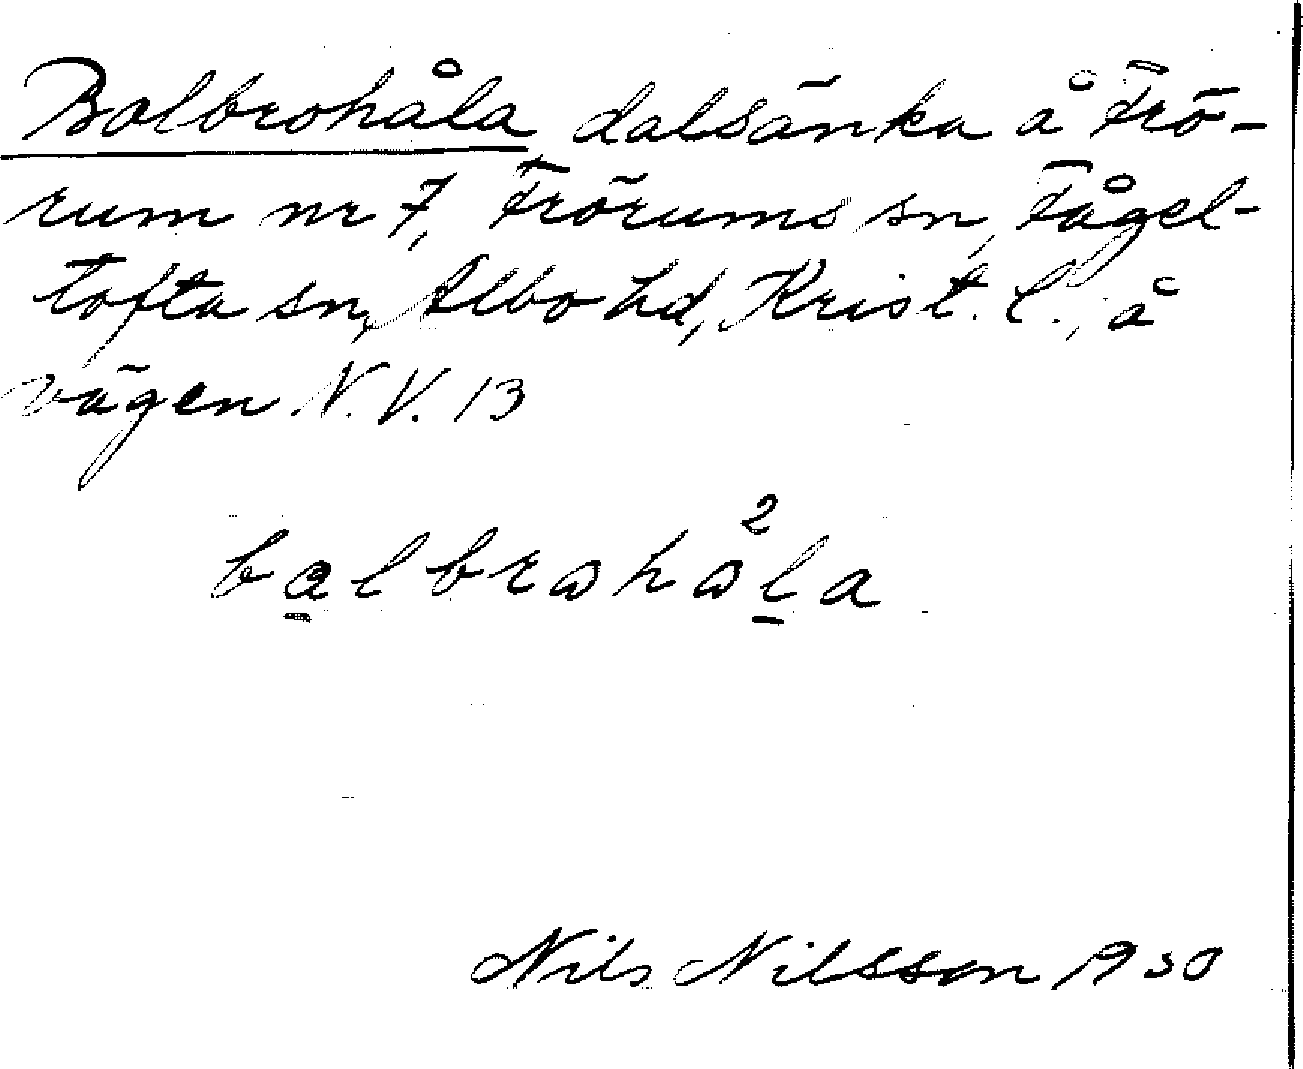 Balbrohåla dalsänka å Frö-
rum nr 7, Frörums sn, Fågel-
tofta sn, Albo hd, Krist. l., å
vägen N.V. 13
balbrωhω²la
Nils Nilsson 1930